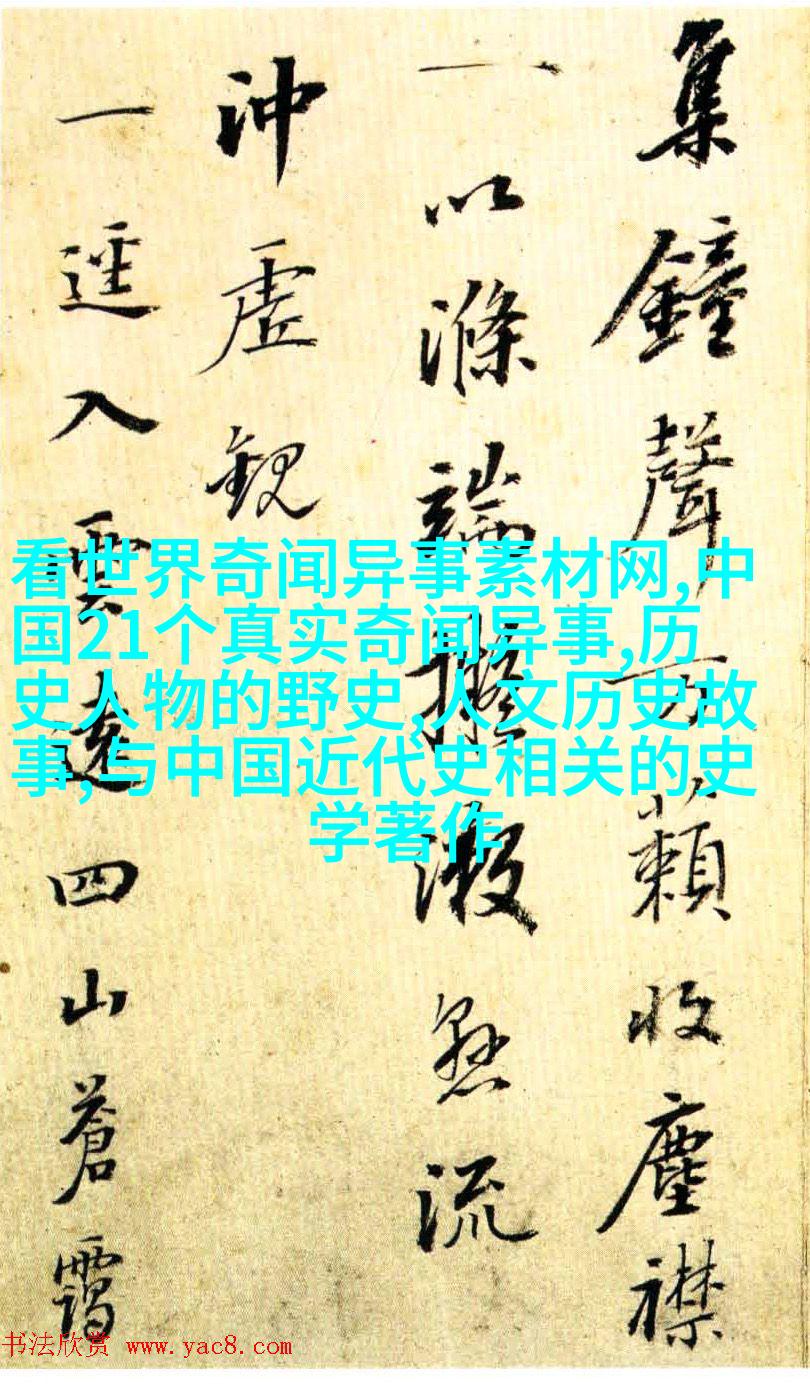 集鐘聲万籟收塵襟
一以滌端擬漱懸流
沖虛觀
一逕入雲遠四山蒼靄
看世界奇闻异事素材网,中
国21个真实奇闻异事,历
史人物的野史,人文历史故
事,与中国近代史相关的史
学著作
书法欣赏 www.yac8.com